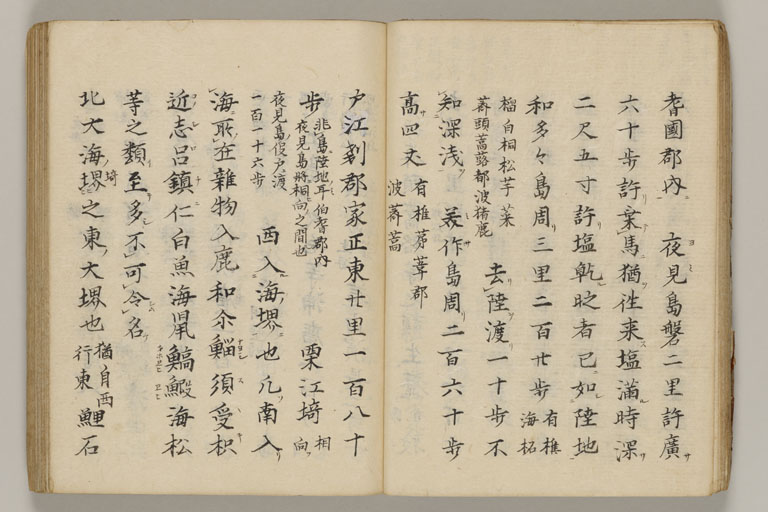 耆國郡内 夜見島磐二里許廣
六十歩許乗馬猶徃来塩満時深
二尺五寸許塩乾時者已如陸地
和多々島周三里二百廿歩有椎海柘
榴白桐松芋菜
薺頭蒿蕗都波猪鹿
去陸渡一十歩不
知深浅 美作島周二百六十歩
高四丈有椎茅葦都
波薺蒿
戸江剗郡家正東廿里一百八十
歩非島陸地耳伯耆郡内
夜見島将相向之間也
栗江埼相向
夜見島促戸渡
一百一十六歩
西入海堺也凡南入
海所在雜物入鹿和尓鯔須受枳
近志呂鎮仁白魚海鼠鰝鰕海松
等之類至多不可令名
北大海埼之東大堺也猶自西
行東
鯉石